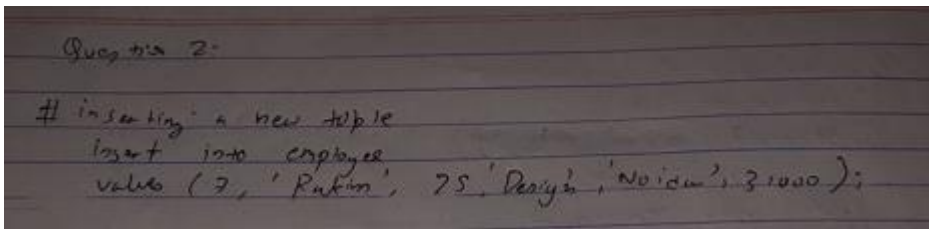 Question 2:
# inserting a new tuple
insert into employee
values (7, 'Rutim', 25, 'Design', 'Noida', 31000);